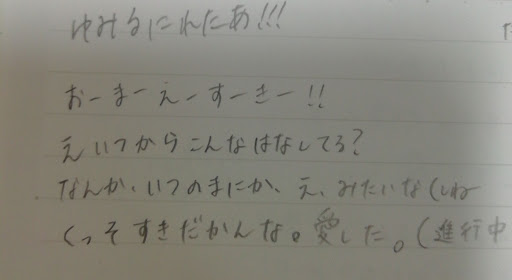 ゆみるにれたあ!!!
おーまーえーすーきー!!
えいつからこんなはなしてろ?
なんか、いつのまにか、え、みたいな(しね
くっそすきだかんな。愛した。(進行中